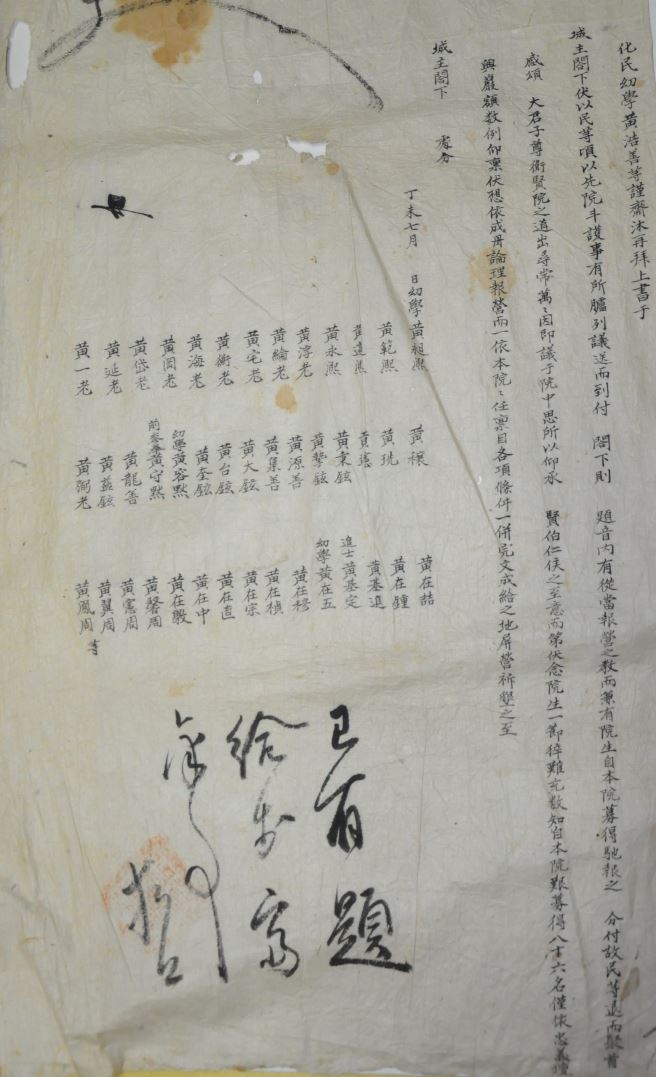 化民幼學黃浩善等謹齋沐再拜上書于
城主閤下伏以民等頃以先院斗護事有所臚列議送而到付 閤下則 題音內有從當報營之敎而兼有院生自本院募得馳報之 分付故民等退而聚首
感頌 大君子尊衛賢院之道出尋常萬〻因卽議于院中思所以仰承 賢伯仁侯之至意而第伏念院生一節猝難充數知自本院艱募得八十六名僅依忠義壇
興巖額數例仰稟伏想依成冊論理報營而一依本院〻任稟目各項條件一倂完文成給之地屛營祈墾之至
城主閤下 處分
丁未七月 日幼學黃昶熙 黃穰 黃在喆
黃範熙 黃珗 黃在鍾
黃達熙 黃瓘 黃基進
黃永熙 黃秉鉉 進士黃基定
黃淳老 黃摯鉉 幼學黃在五
黃綸老 黃源善 黃在穆
黃宅老 黃集善 黃在楨
黃衡老 黃大鉉 黃在宗
黃海老 黃台鉉 黃在直
黃岡老 黃奎鉉 黃在中
黃岱老 幼學黃容默 黃在殷
黃延老 前參奉黃守默 黃馨周
黃一老 黃龍善 黃憲周
黃益鉉 黃翼周
黃弼老 黃鳳周 等
已有題
給出 高